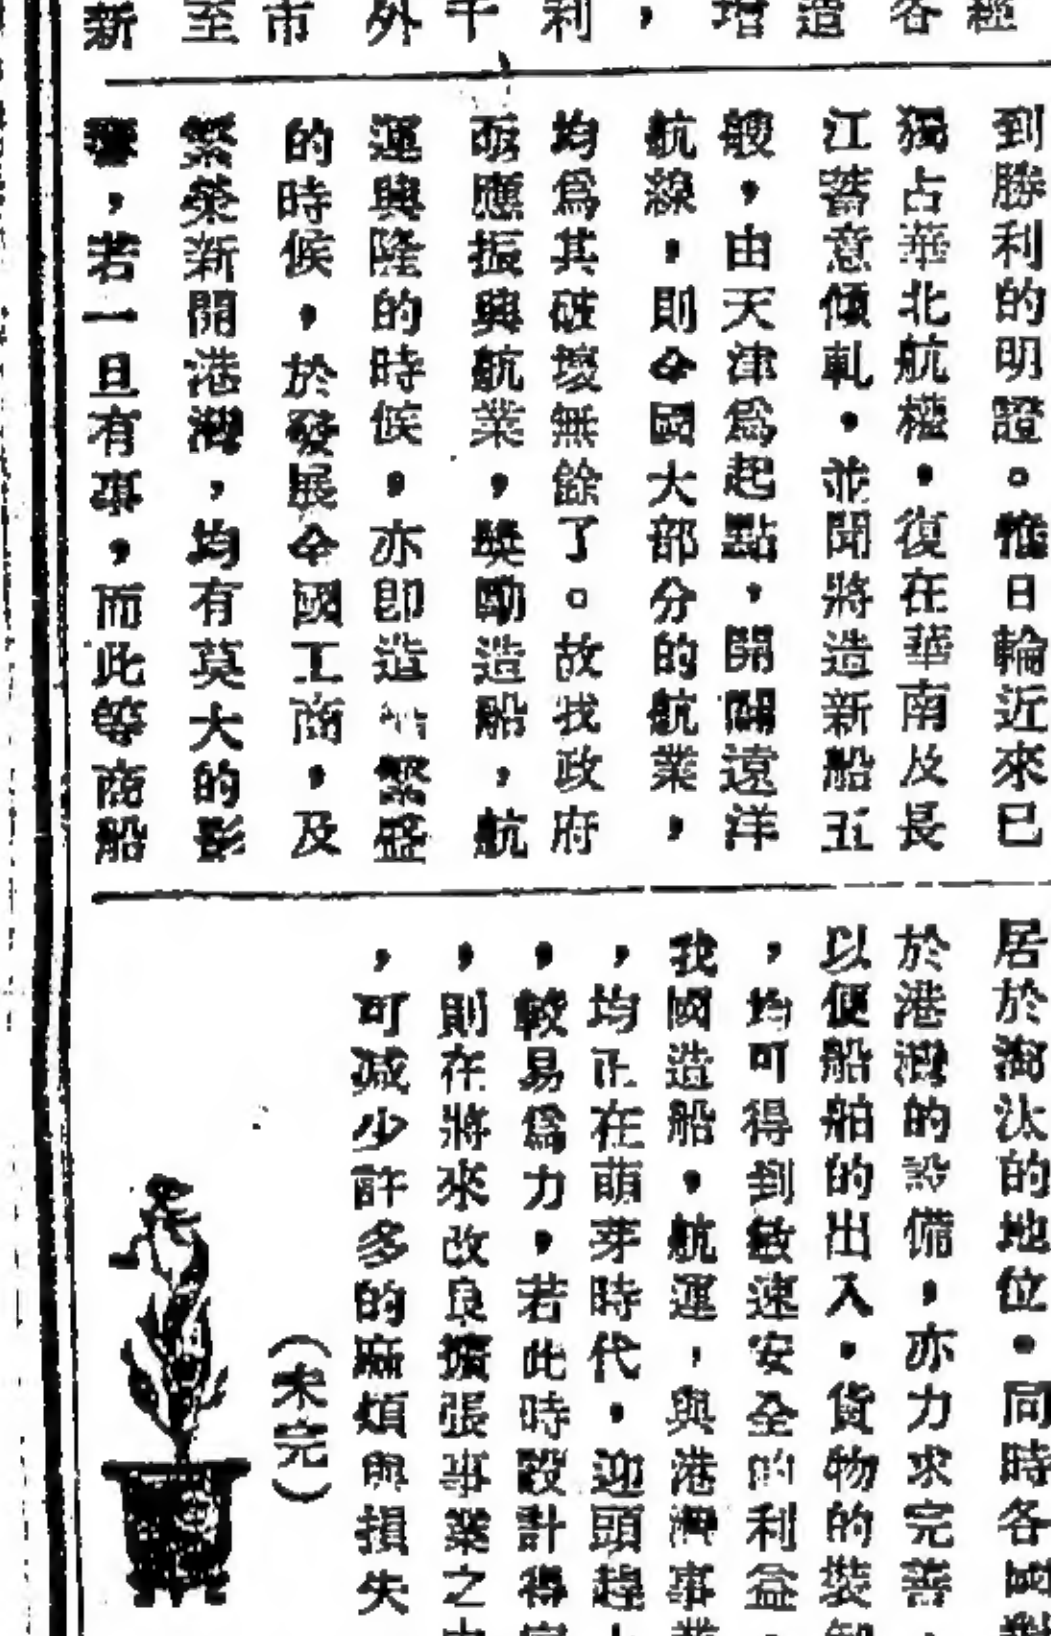 極
各
造
增
，
利
千
外
市
至
新
到勝利的明證。惟日輪近來已
獨占華北航權，復在華南及長
江蓄意傾軋，並聞將造新船五
艘，由天津爲起點，開闢遠洋
航線，則全國大部分的航業，
均爲其破壞無餘了。故我政府
亟應振興航業，獎勵造船，航
運興隆的時候，亦即造船繁盛
的時候，於發展全國工商，及
繁榮新開港灣，均有莫大的影
響，若一旦有事，而此等商船
居於淘汰的地位，同時各國對
於港灣的設備，亦力求完善，
以便船舶的出入，貨物的裝卸
，均可得到敏速安全的利益，
我國造船，航運，與港灣事業
，均正在萌芽時代，迎頭趕上
，較易爲力，若此時設計得宜
，則在將來改良擴張事業之中
，可減少許多的麻煩與損失
（未完）